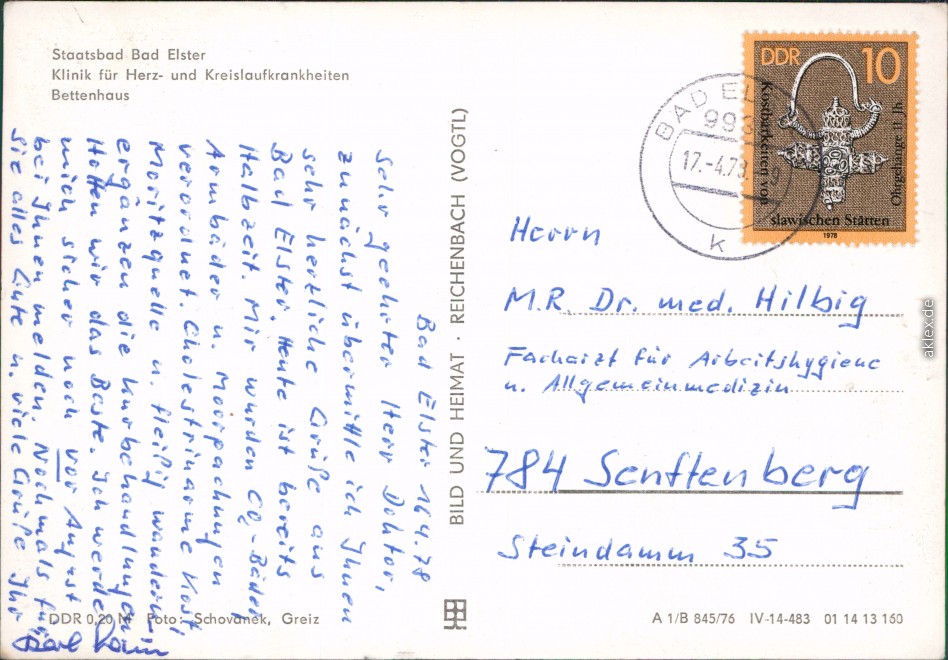 Staatsbad Bad Elster
Klinik für Herz- und Kreislaufkrankheiten
Bettenhaus
Bad Elster 16.4.78
Sehr geehrter Herr Doktor,
zunächst übermittle ich Ihnen
sehr herzliche Grüße aus
Bad Elster. Heute ist bereits
Halbzeit. Mir wurden CO₂-Bäder,
Armbäder u. Moorpackungen
verordnet. Cholestrinarme Kost,
Moritzquelle u. fleißig wandern
ergänzen die Kurbehandlungen.
Hoffen wir das Beste. Ich werde
mich sicher noch vor August
bei Ihnen melden. Nochmals für
Sie alles Gute u. viele Grüße Ihr
Karl
DDR 0,20 M Foto: Schovanek, Greiz
BILD UND HEIMAT · REICHENBACH (VOGTL)
BAD EL
993
17.-4.78.
k
DDR 10
Kostbarkeiten von
slawischen Stätten
Ohrgehänge 11. Jh.
1978
Herrn
M.R. Dr. med. Hilbig
Facharzt für Arbeitshygiene
u. Allgemeinmedizin
784 Senftenberg
Steindamm 35
A 1/B 845/76 IV-14-483 01 14 13 160
aklex.de